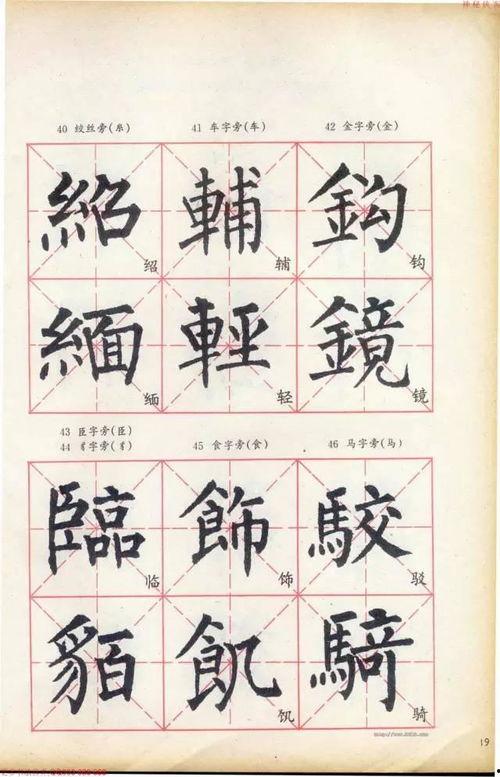 40 绞丝旁(糹) 41 车字旁(车) 42 金字旁(金)
紹 輔 鈎
绍 辅 钩
緬 輕 鏡
缅 轻 镜
43 臣字旁(臣)
44 豸字旁(豸) 45 食字旁(食) 46 马字旁(马)
臨 飾 駮
临 饰 驳
貊 飢 騎
饥 骑
19